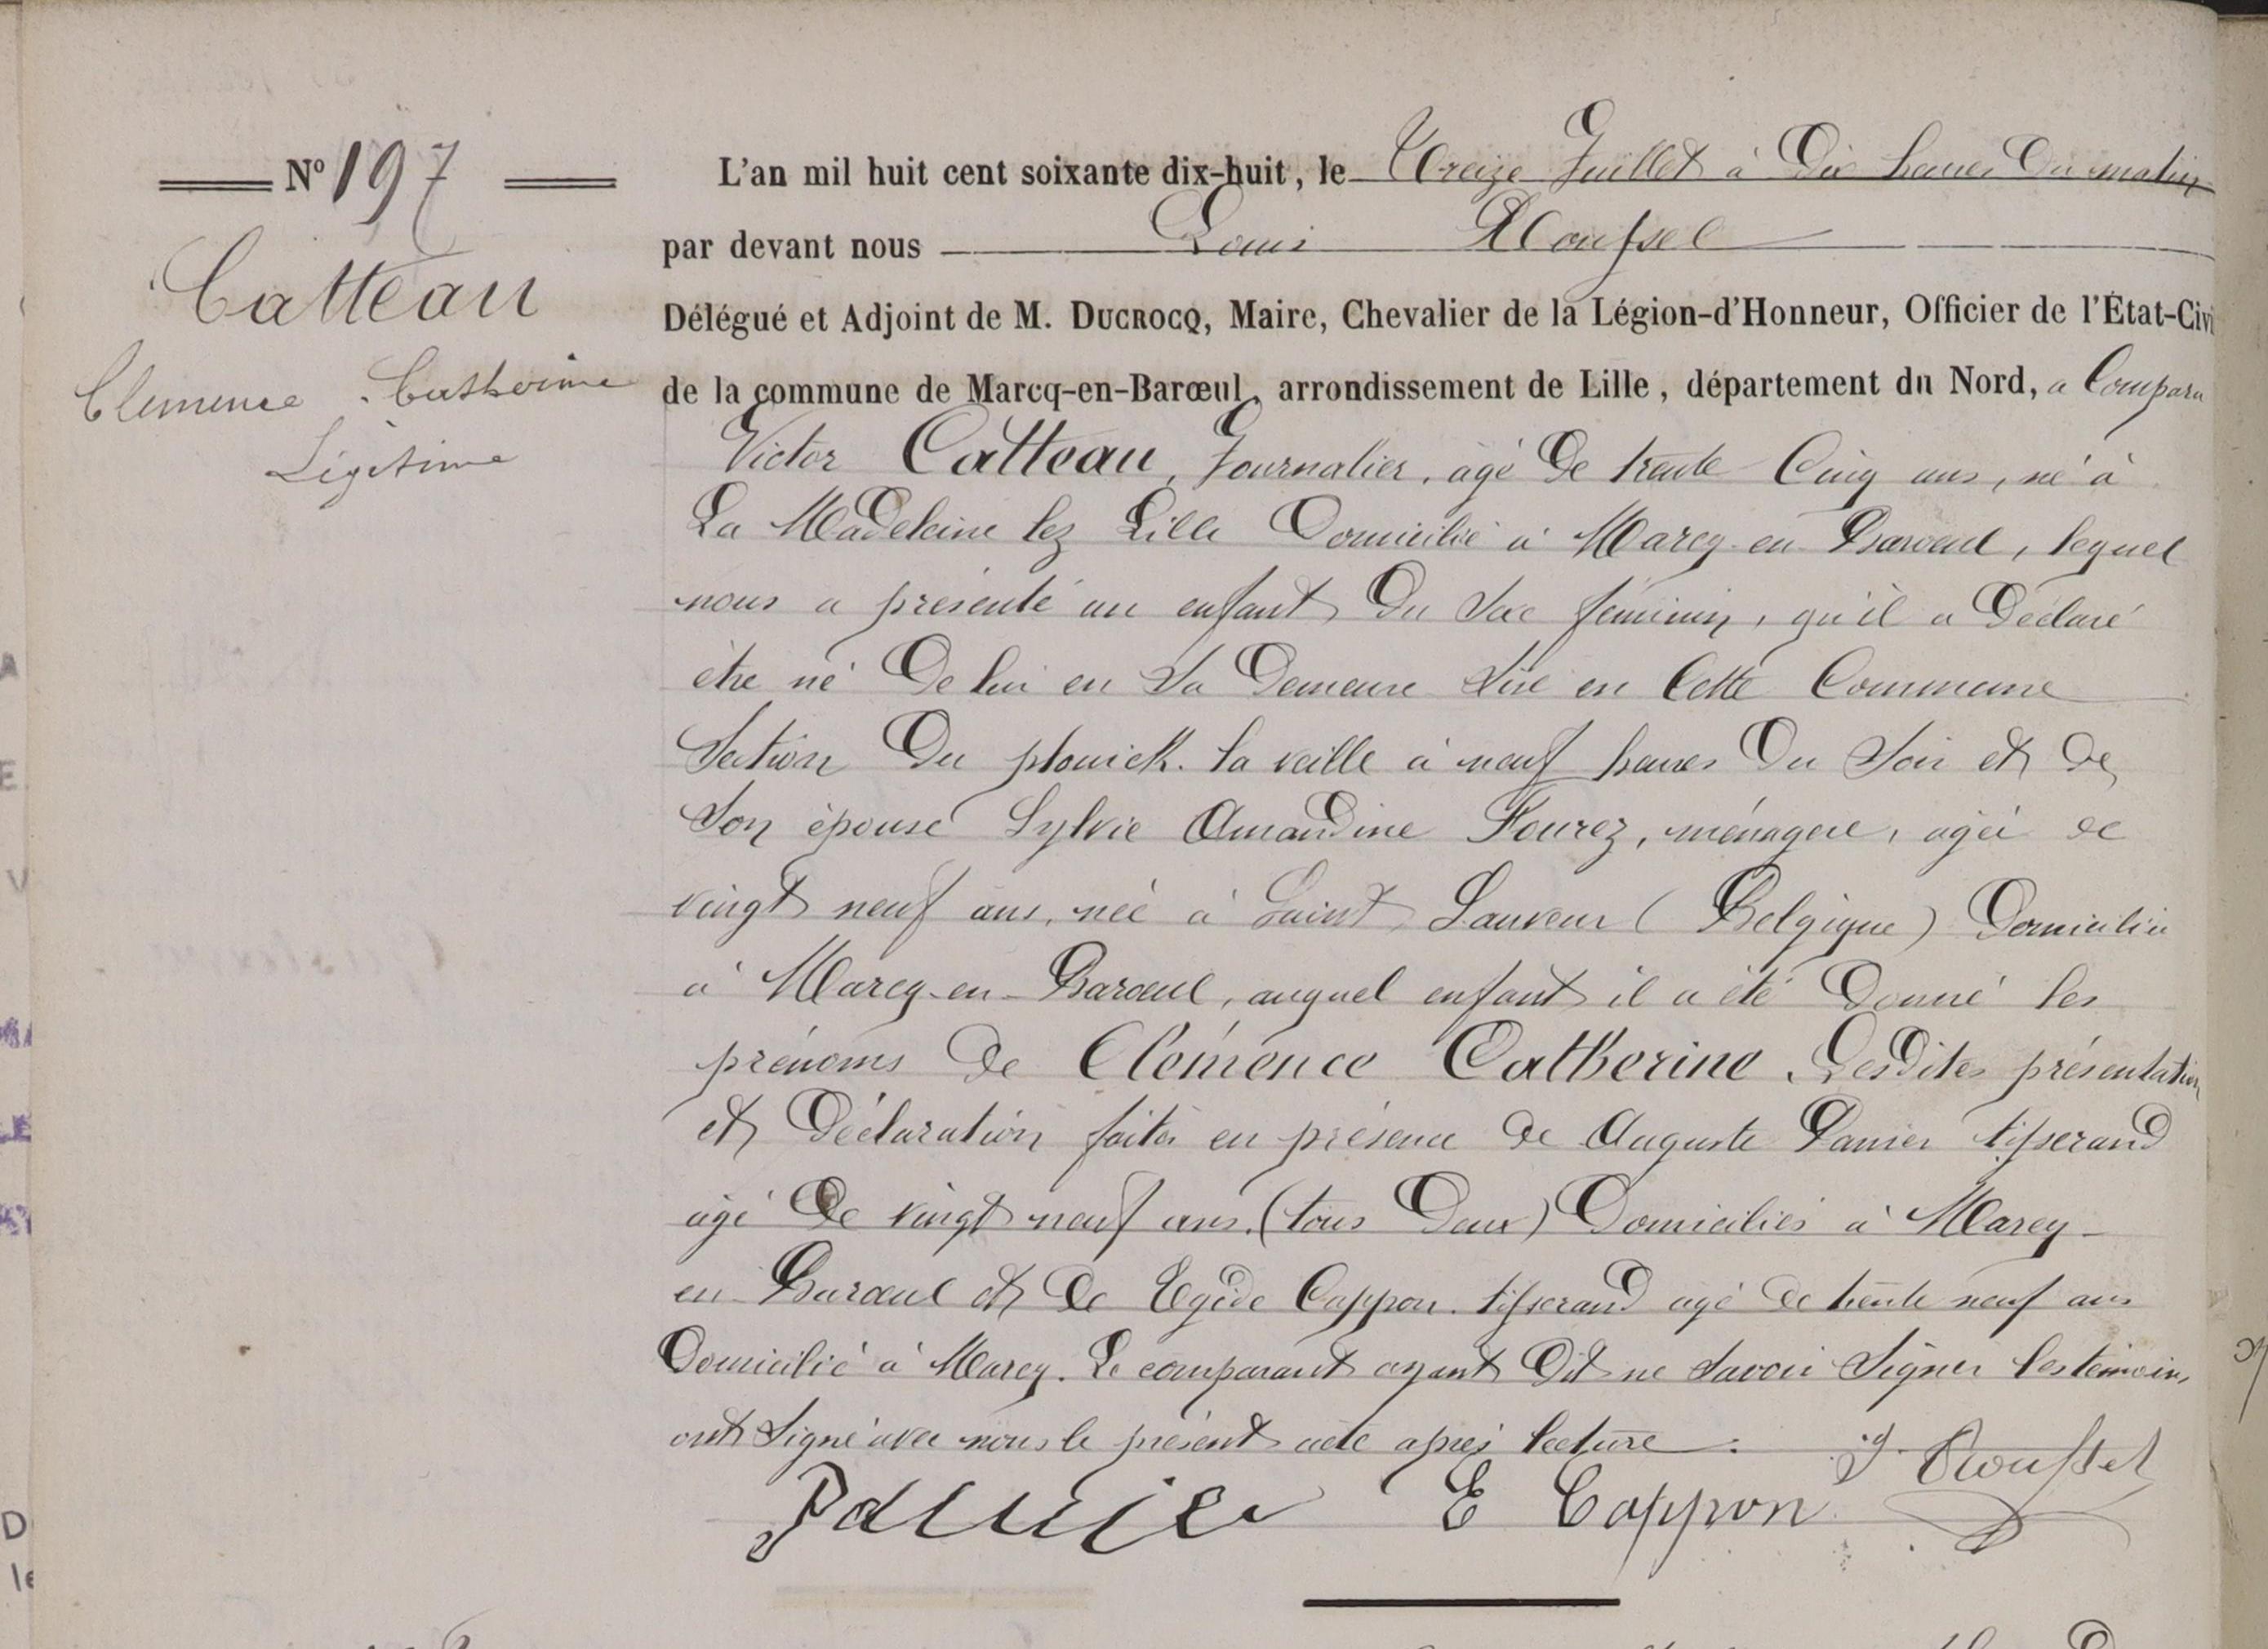 N° 197
Catteau
Clemence Catherine
Légitime
L'an mil huit cent soixante dix-huit, le Treize Juillet à Dix heures Du matin
par devant nous Louis Roussel
Délégué et Adjoint de M. DUCROCQ, Maire, Chevalier de la Légion-d'Honneur, Officier de l'État-Civi
de la commune de Marcq-en-Barœul, arrondissement de Lille, département du Nord, a Comparu
Victor Catteau, Journalier, âgé De trente Cinq ans, né à
La Madeleine lez Lille Domicilié à Marcq-en-Baroeul, lequel
nous a présenté un enfant Du Sexe féminin, qu'il a Déclaré
être né De lui en Sa Demeure Sise en Cette Commune
Section Du plouick. la veille à neuf heures Du Soir et De
Son épouse Sylvie Amandine Fourez, ménagère, agée de
vingt neuf ans, née à Saint Sauveur (Belgique) Domiciliée
à Marcq-en-Baroeul, auquel enfant il a été Donné les
prénoms De Clémence Catherine. Lesdites présentation
et Déclaration faites en présence De Auguste Panier tisserand
agé De vingt neuf ans. (tous Deux) Domiciliés à Marcq-
en Baroeul et De Egide Cappon. tisserand agé De trente neuf ans
Domicilié à Marcq. Le comparant ayant Dit ne Savoir Signer les témoins
ont Signé avec nous le présent acte après lecture.
Pannier E Cappon Roussel